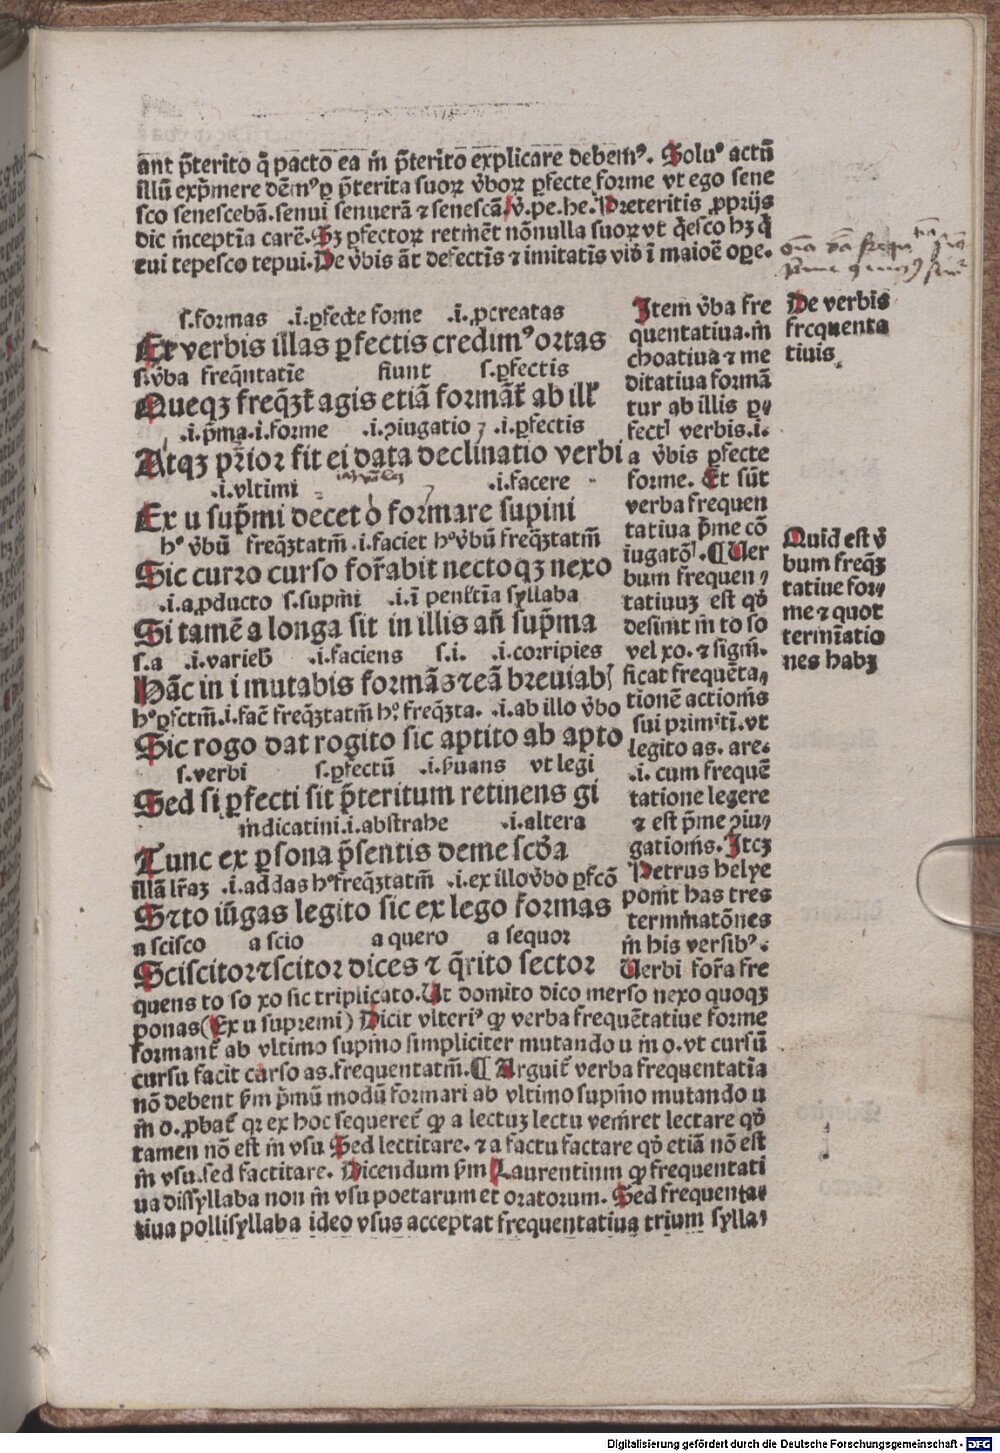 ant p̃terito q̃ pacto ea in p̃terito explicare debemꝰ. Soluꝰ actũ
illũ exp̃mere dẽmꝰ p̱ p̃terita suoꝝ v̇boꝝ p̱fecte forme vt ego sene
sco senescebã. senui senuerã ⁊ senescã. v̇. pe. he. Preteritis ꝓprijs
dic incept̃ia carẽ. Sꝫ p̱fectoꝝ retinẽt nõnulla suoꝝ vt q̃esco hꝫ q̃
eui tepesco tepui. De v̇bis ãt defect̃is ⁊ imitat̃is vid̃ ĩ maioẽ oꝑe.
s. formas .i. p̱fecte fome .i. ꝓcreatas
Ex verbis illas p̱fectis credimꝰ ortas
s. v̇ba freq̃ntatĩe fiunt s. p̱fectis
Queqꝫ freqꝫt̃ agis etiã formãt̃ ab ill̃
.i. p̃ma .i. forme .i. ↄiugatio .i. p̱fectis
Atqꝫ prĩor fit ei data declinatio verbi
.i. vltimi .i. facere
Ex u sup̃mi decet o formare supini
hꝰ v̇bũ freqꝫtatiñ .i. faciet hꝰ v̇bũ freqꝫtatiñ
Sic curro curso for̃abit nectoqꝫ nexo
.i. a ꝓducto s. supini .i. ĩ penl̃tĩa syllaba
Si tamẽ a longa sit in illis añ sup̃ma
s. a .i. varieb̃ .i. faciens s. i. .i. corripies
Hãc in i mutabis formãs ⁊ eã breuiab̃
hꝰ p̱fctiñ .i. fac̃ freqꝫtatiñ hꝰ freqꝫta. .i. ab illo v̇bo
Sic rogo dat rogito sic aptito ab apto
s. verbi s. p̱fectũ .i. ẜuans vt legi
Sed si p̱fecti sit p̃teritum retinens gi
indicatini .i. abstrahe .i. altera
Tunc ex p̱sona p̃sentis deme scd̃a
illã lr̃aꝫ .i. addas hꝰ freqꝫtatiñ .i. ex illo v̇bo p̱fcõ
S⁊to iũgas legito sic ex lego formas
a scisco a scio a quero a sequor
Sciscitor ⁊ scitor dices ⁊ q̃rito sector
Item v̇ba fre
quentatiua. in
choatiua ⁊ me
ditatiua formã
tur ab illis p̱
fectꝭ verbis. i.
a v̇bis p̱fecte
forme. Et sũt
verba frequen
tatiua p̃me cõ
iugatõꝭ. ¶ Uer
bum frequen
tatiuuꝫ est qd̃
desinit in to so
vel xo. ⁊ signi.
ficat frequẽta
tionẽ actionis
sui primiti. vt
legito as. are.
.i. cum frequẽ
tatione legere
⁊ est p̃me ↄiu
gationis. Iteꝫ
Petrus helye
ponit has tres
terminatões
in his versibꝰ.
Uerbi for̃a fre
quens to so xo sic triplicato. Ut domito dico merso nexo quoqꝫ
ponas (Ex u supremi) Dicit vlteriꝰ ꝙ verba frequẽtatiue forme
formant̃ ab vltimo supino simpliciter mutando u in o. vt cursũ
cursu facit curso as. frequentatiñ. ¶ Arguit̃ verba frequentatĩa
nõ debent ẜm p̃mũ modũ formari ab vltimo supino mutando u
in o. ꝓbat̃ qꝛ ex hoc sequeret̃ ꝙ a lectuꝫ lectu veniret lectare qd̃
tamen nõ est in vsu Sed lectitare. ⁊ a factu factare qd̃ etiã nõ est
in vsu. sed factitare. Dicendum ẜm Laurentium ꝙ frequentati
ua dissyllaba non in vsu poetarum et oratorum. Sed frequenta
tiua pollisyllaba ideo vsus acceptat frequentatiua trium sylla
De verbis
frequenta
tiuis
Quid est v̇
bum freqꝫ
tatiue for
me ⁊ quot
termĩatio
nes habꝫ
Digitalisierung gefördert durch die Deutsche Forschungsgemeinschaft - DFG